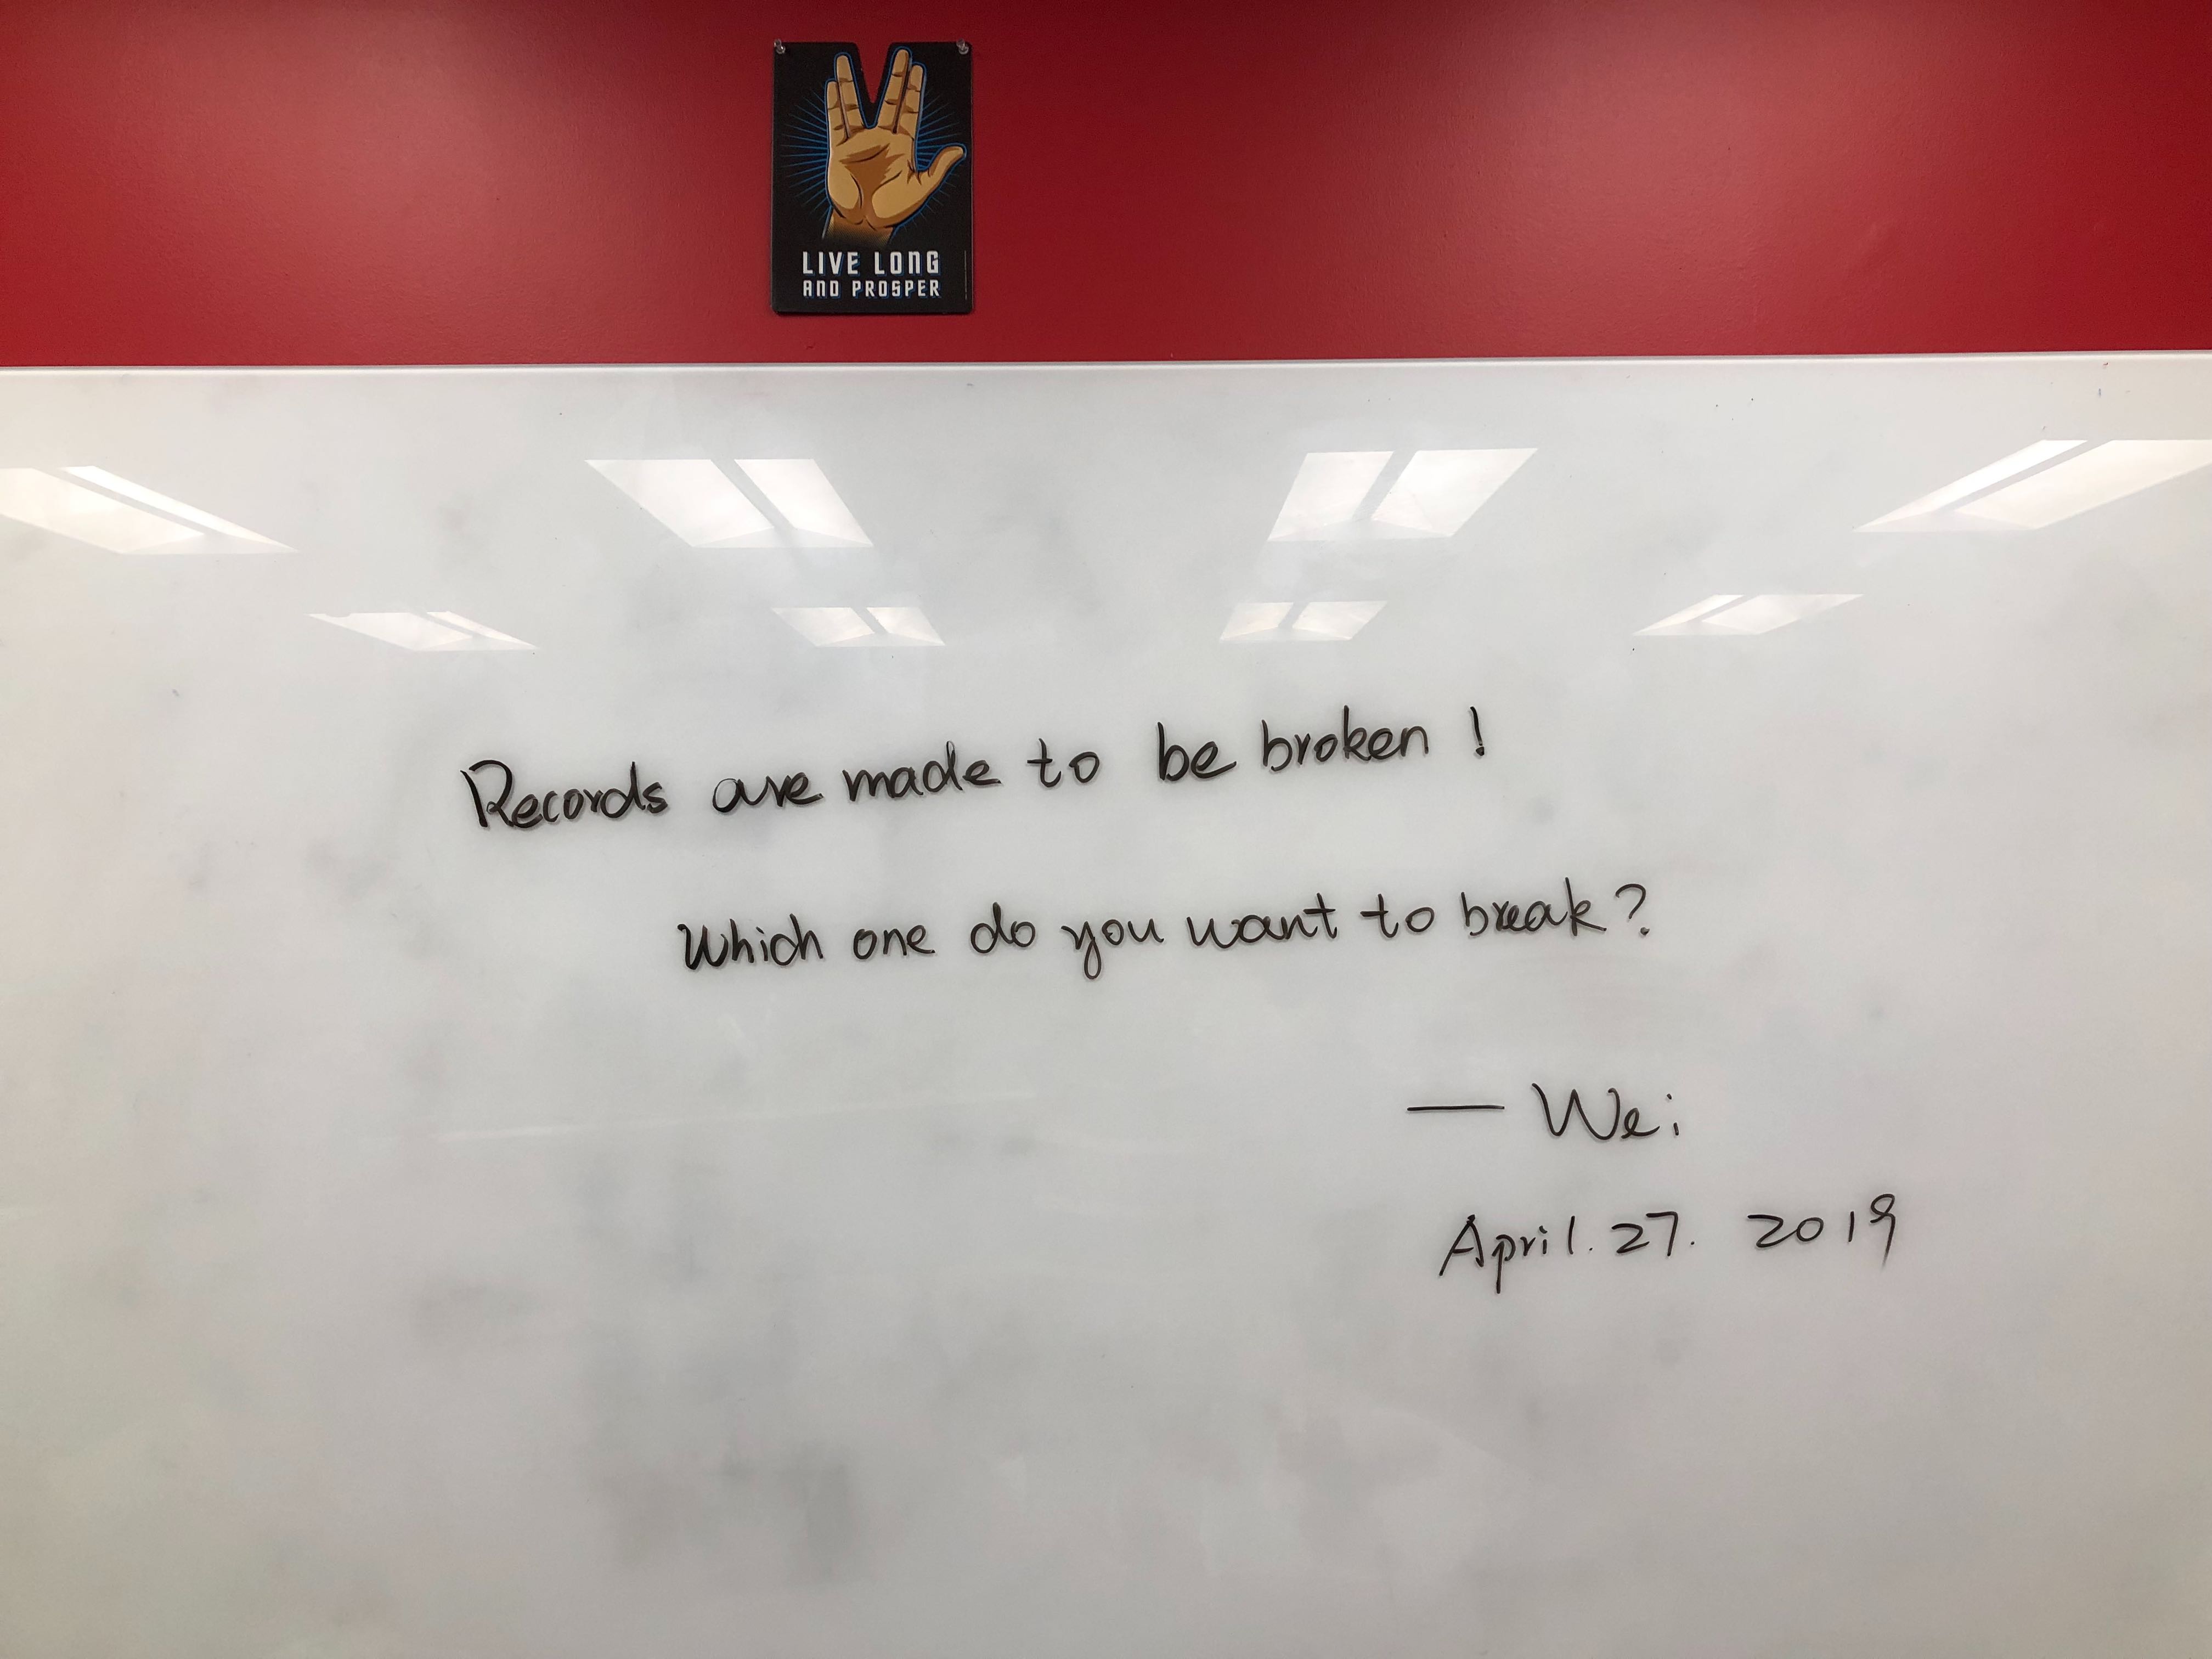 LIVE LONG
AND PROSPER
Records are made to be broken!
Which one do you want to break?
— Wei
April. 27. 2019